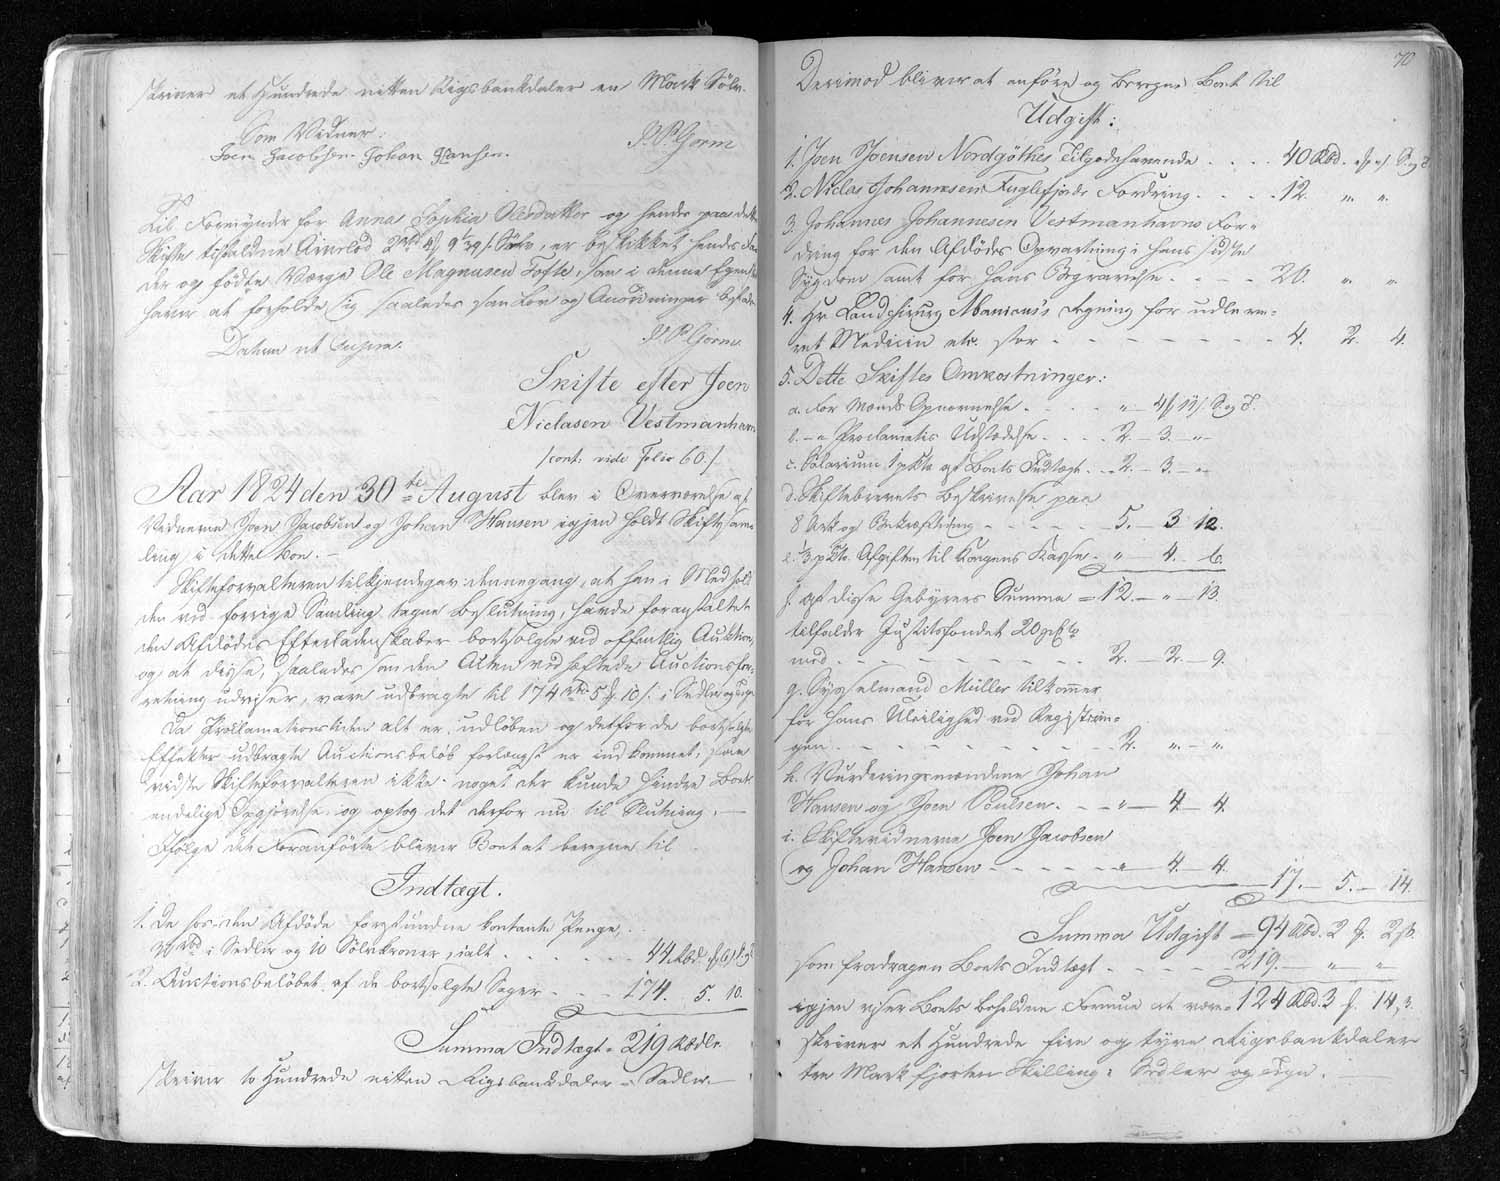 skriver et Hundrede nitten Rigsbankdaler en Mark Sølv.
Som Vidner:
Joen Jacobsen. Johan Hansen.
P. P. Gorm
Til Formynder for Anna Sophia Olesdatter og hendes paa dette
Skifte tilfaldne Arvelod er beskikket hendes Fa-
der og fødte Værge Ole Magnusen Tofte, som i denne Egenskab
haver at forholde sig saaledes som Lov og Anordninger befale
Datum ut Supra.
P. P. Gorm
Skifte efter Joen
Niclasen Vestmanhavn
/cont: vide Folio 60/.
Aar 1824 den 30te August blev i Overværelse af
Vidnerne Joen Jacobsen og Johan Hansen igjen holdt Skiftesam-
ling i dette Boe. -
Skifteforvalteren tilkjendegav: dennegang, at han i Medhold
den ved forrige Samling tagne Beslutning, havde foranstaltet
den Afdødes Efterladenskaber bortsolgte ved offentlig Auktion,
og at disse, saaledes som den Acten vedhæftede Auctionsfor-
retning udviser, vare udbragte til 174 rbd 5 ƒ 10 s. i Sedler og Tegn
Da Proclamationstiden alt er udløben og det for de bortsolgte
Effekter udbragte Auctionsbeløb forlængst er indkommet, saa
vidste Skifteforvalteren ikke noget der kunde hindre Boets
endelige Opgjørelse og optog det derfor nu til Slutning. —
Ifølge det Foranførte bliver Boet at beregne til
Indtægt.
1. De hos den Afdøde forefundne kontante Penge,
rbd i Sedler og 10 Sølvkroner, ialt . . . . . 44 Rbd.
2. Auctionsbeløbet af de bortsolgte Sager - - - 174. 5. 10.
Summa Indtægt = 219 Rbdlr.
skriver to Hundrede nitten Rigsbankdaler i Sedler. —
70
Derimod bliver at anføre og beregne Boet til
Udgift:
1. Joen Joensen Nordgöthes Tilgodehavende . . . . 40 Rbd. " ƒ " s. S. og T.
2. Niclas Johannesen Fuglefjords Fordring . . . . 12. " "
3. Johannes Johannesen Vestmanhavns For-
dring for den Afdødes Opvartning i hans sidste
Sygdom samt for hans Begravelse . - - - 20. " "
4. Hr Landchirurg Manicus's Regning for udleve-
ret Medicin etc. stor - - - - - - - - 4. 2. 4.
5. Dette Skiftes Omkostninger:
a. For Mænds Opnævnelse . . . . " 4 ƒ 12 s. S. og T.
b. - " Proclamatis Udstedelse . . . . 2. - 3. - "
c. Salarium 1 pCto af Boets Indtægt. - 2. - 3. - "
d. Skiftebrevets Beskrivelse paa
8 Ark og Bekræftning - - - - - 5. - 3 12.
e. 1/3 pCto. Afgiften til Kongens Kasse - " - 4. - 6.
f. af disse Gebyrers Summa = 12 - " - 13
tilfalder Justitsfondet 20 pCto
med . - - - - - - - - 2. - 2. - 9.
g. Sysselmand Müller tilkommer
for hans Uleilighed ved Registrerin-
gen . - - - - - - - - 2. " - "
h. Vurderingsmændene Johan
Hansen og Joen Poulsen. - - " - 4 - 4.
i. Skiftevidnerne Joen Jacobsen
og Johan Hansen - - - - - " - 4. - 4.
17. - 5. - 14.
Summa Udgift = 94 Rbd. 2 ƒ. 2 s.
som fradragen Boets Indtægt - - - - 219. - " "
igjen viser Boets beholdne Formue at være = 124 Rbd. 3 ƒ. 14 s.
skriver et Hundrede fire og tyve Rigsbankdaler
tre Mark fjorten Skilling i Sedler og Tegn.